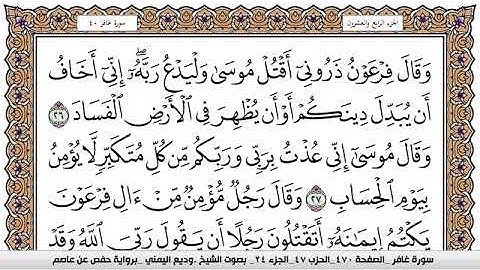 الجزء الرابع والعشرون
سورة غافر ٤٠
وَقَالَ فِرْعَوْنُ ذَرُونِىٓ أَقْتُلْ مُوسَىٰ وَلْيَدْعُ رَبَّهُۥٓ ۖ إِنِّىٓ أَخَافُ
أَن يُبَدِّلَ دِينَكُمْ أَوْ أَن يُظْهِرَ فِى ٱلْأَرْضِ ٱلْفَسَادَ ٢٦
وَقَالَ مُوسَىٰٓ إِنِّى عُذْتُ بِرَبِّى وَرَبِّكُم مِّن كُلِّ مُتَكَبِّرٍ لَّا يُؤْمِنُ
بِيَوْمِ ٱلْحِسَابِ ٢٧ وَقَالَ رَجُلٌ مُّؤْمِنٌ مِّنْ ءَالِ فِرْعَوْنَ
يَكْتُمُ إِيمَٰنَهُۥٓ أَتَقْتُلُونَ رَجُلًا أَن يَقُولَ رَبِّىَ ٱللَّهُ وَقَدْ
سورة غافر _الصفحة ٤٧٠_الحزب ٤٧_الجزء ٢٤_ بصوت الشيخ _وديع اليمني _برواية حفص عن عاصم